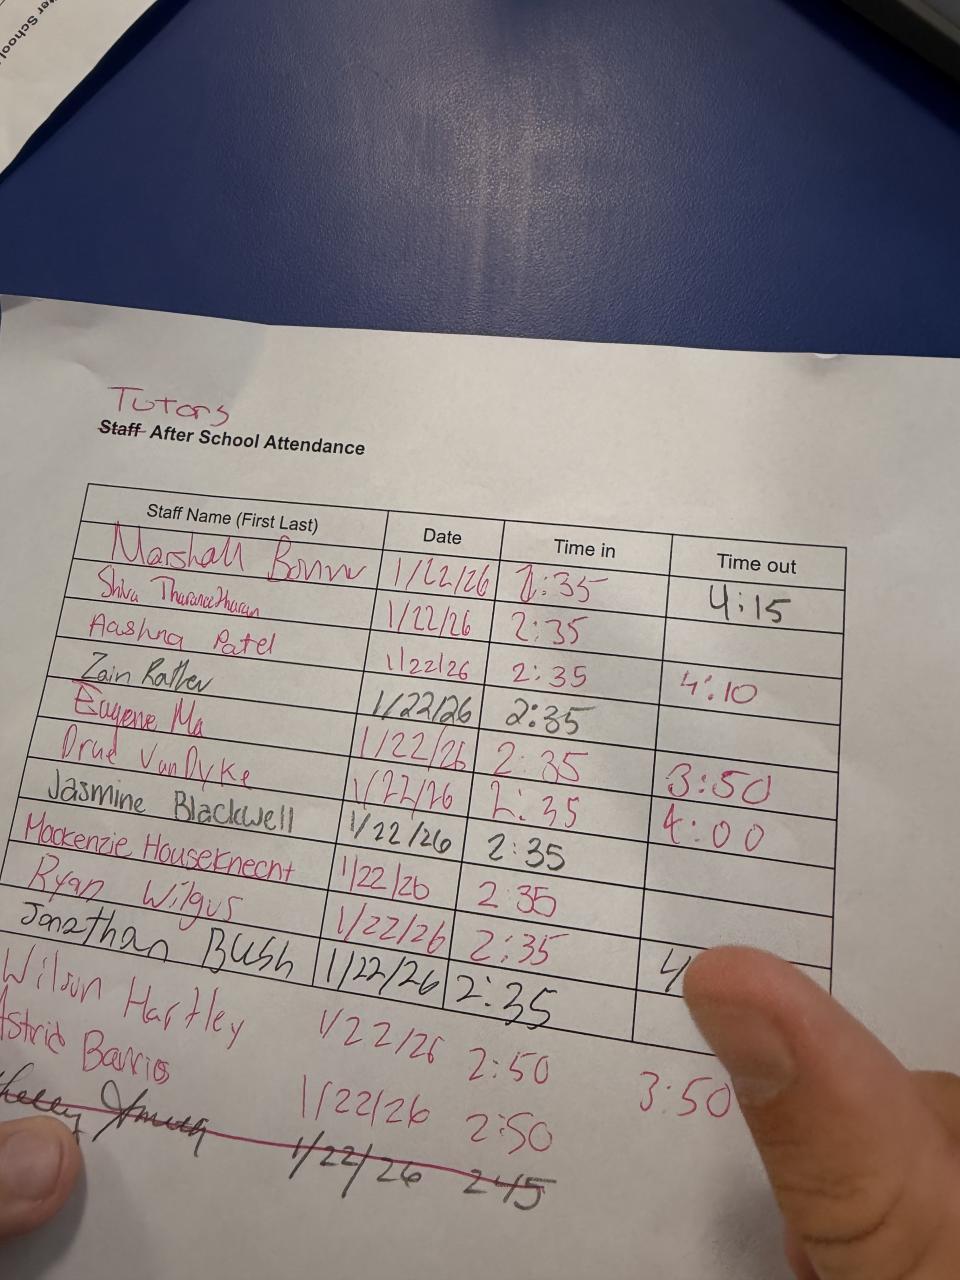 ter School
Tutors
Staff After School Attendance
Staff Name (First Last) Date Time in Time out
Marshall 1/22/26 2:35 4:15
Shiva 1/22/26 2:35
Aashna Patel 1/22/26 2:35 4:10
Zain 1/22/26 2:35
Eugene Ma 1/22/26 2:35 3:50
Drue VanDyke 1/22/26 2:35 4:00
Jasmine Blackwell 1/22/26 2:35
Mackenzie Houseknecht 1/22/26 2:35
Ryan Wilgus 1/22/26 2:35
Jonathan Bush 1/22/26 2:35
Wilson Hartley 1/22/26 2:50 3:50
Astrid Barrios 1/22/26 2:50
1/22/26 2:45